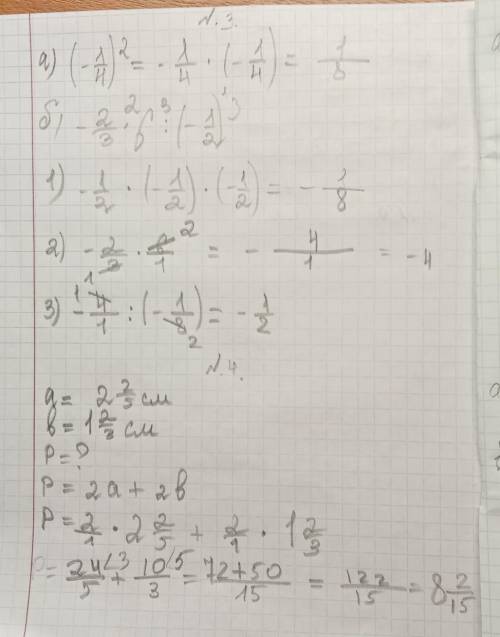 N.3.
а) (-1/4)² = -1/4 · (-1/4) = 1/8
б) -2/3 · 6 : (-1/2)³
1) -1/2 · (-1/2) · (-1/2) = -1/8
2) -2/3 · 6/1 2 = -4/1 = -4
3) -4/1 : (-1/8) = -1/2
N.4.
a = 2 2/5 см
в = 1 2/3 см
P = ?
P = 2a + 2в
P = 2/1 · 2 2/5 + 2/1 · 1 2/3
= 24/5 + 10/3 = 72+50/15 = 122/15 = 8 2/15